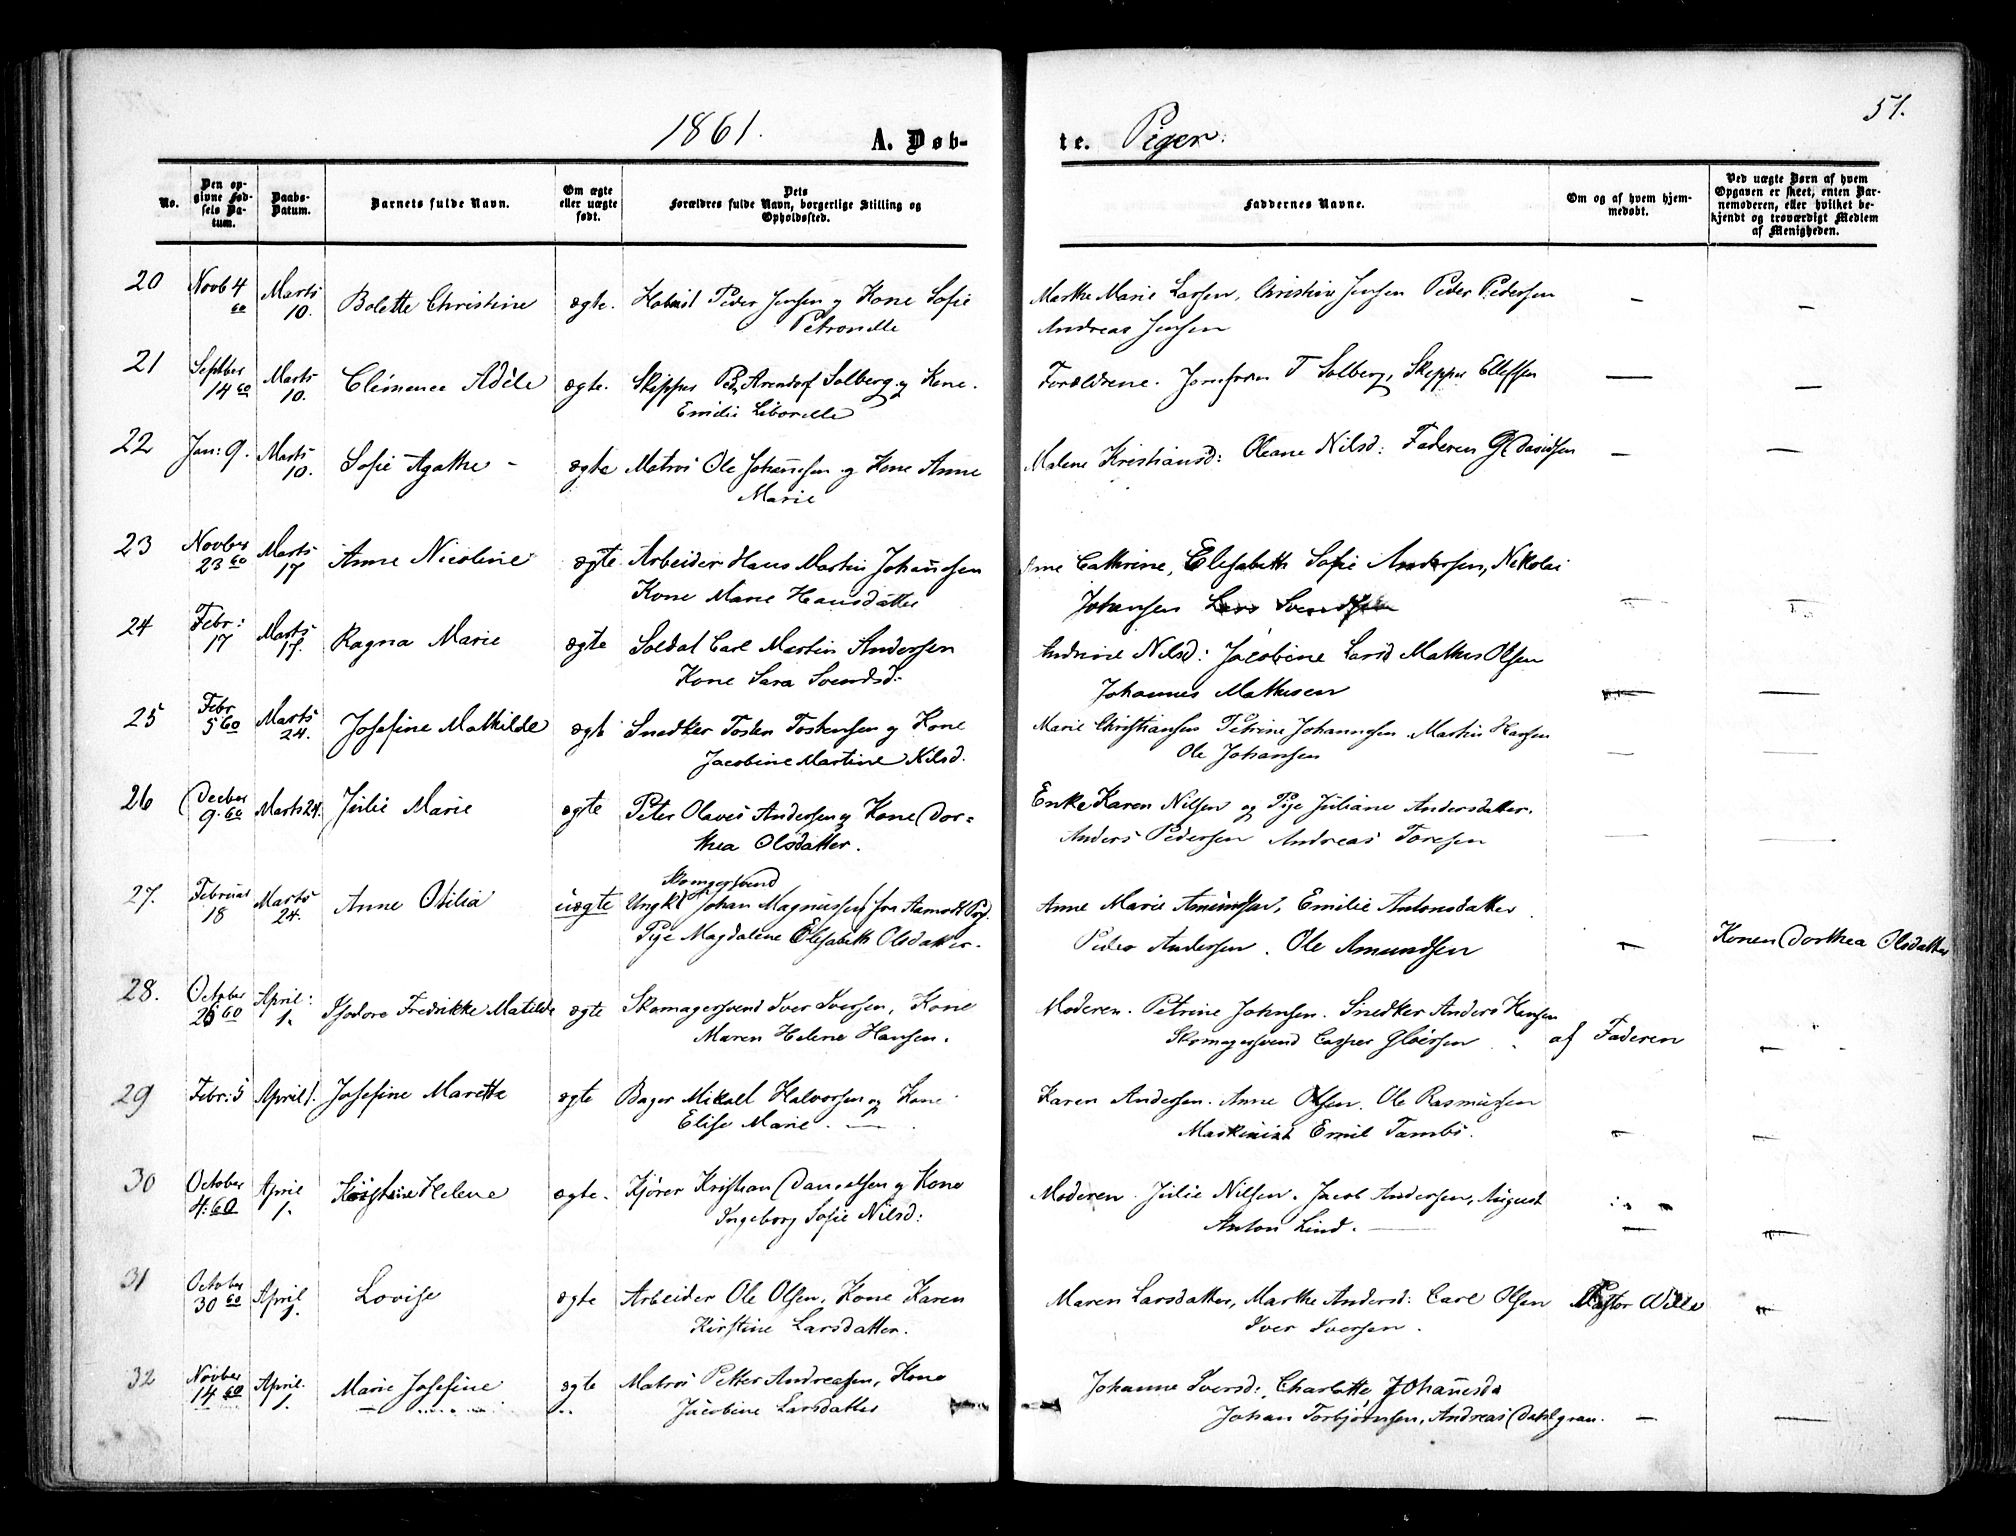 51.
1861. A. Døb- te. Piger.
No.
Den op-
givne Fød-
sels Da-
tum.
Daabs-
Datum.
Barnets fulde Navn.
Om ægte
eller uægte
født.
Dets
Forældres fulde Navn, borgerlige Stilling og
Opholdssted.
Faddernes Navne.
Om og af hvem hjem-
medøbt.
Ved uægte Børn af hvem
Opgaven er skeet, enten Bar-
nemoderen, eller hvilket be-
kjendt og troværdigt Medlem
af Menigheden.
20 Novb 4 60 Marts 10. Bolette Christine ægte. Peder Jensen og Kone Sofie
Petronelle
Marthe Marie Larsen, Christine Jensen Peder Pedersen — —
Andreas Jensen
21 Septber 14 60 Marts 10. Clémence Adèle ægte. Skipper Arendorf Solberg og Kone.
Emilie
Forældrene. Jomfruen T Solberg, Skipper Ellefsen — —
22 Jan: 9. Marts 10. Sofie Agathe - ægte Matros Ole Johannesen og Kone Anne
Marie
Malene Kristiansd: Oleane Nilsd: Faderen Davidsen — —
23 Novber 23 60 Marts 17 Anne Nicoline ægte Arbeider Hans Martin Johannesen
Kone Marie Hansdatter
Cathrine, Elisabeth Sofie Andersen, Nikolai
Johansen — —
24 Febr: 17 Marts 17. Ragna Marie ægte Soldat Carl Martin Andersen
Kone Sara Svendsd:
Andrine Nilsd: Jacobine Larsd Mathis Olsen
Johannes Mathisen — —
25 Febr 5 60 Marts 24. Josefine Mathilde ægte Snedker Tosten Tostensen og Kone
Jacobine Martine Nilsd.
Marie Christiansen Petrine Johannesen. Martin Hansen
Ole Johansen — —
26 Decber 9. 60 Marts 24. Julie Marie ægte Peter Olaves Andersen og Kone Dor-
thea Olsdatter.
Enke Karen Nilsen og Pige Juliane Andersdatter.
Anders Pedersen Andreas Toresen — —
27. Februar 18 Marts 24. Anne Otilia uægte Skomagersvend
Ungkl Johan Magnussen fra Aamodt Pgd.
Pige Magdalene Elisabeth Olsdatter.
Anne Marie Amundsen, Emilie Antonsdatter
Peder Andersen. Ole Amundsen — Konen Dorthea Olsdatter
28. October 25 60 April: 1. Isidora Fredrikke Matilde ægte Skomagersvend Iver Iversen, Kone
Maren Helene Hansen.
Moderen. Petrine Johnsen. Snedker Anders Hansen
Skomagersvend Casper Gløersen. af Faderen —
29 Febr: 5 April 1. Josefine Marette ægte Bager Mikael Halvorsen og Kone
Elise Marie. —
Karen Andersen. Anne Olsen. Ole Rasmussen
Maskinist Emil Tambs. — —
30 October 4: 60 April 1. Helene ægte. Kjører Kristian Danielsen og Kone
Ingeborg Sofie Nilsd:
Moderen. Julie Nilsen. Jacob Andersen, August
Anton Lind. — — —
31 October 30 60 April 1. Lovise ægte Arbeider Ole Olsen, Kone Karen
Kirstine Larsdatter.
Maren Larsdatter, Marthe Andersd: Carl Olsen Pastor Wille —
Iver Iversen.
32 Novber 14 60 April. 1 Marie Josefine ægte Matros Petter Andreasen, Kone
Jacobine Larsdatter
Johanne Iversd:, Charlotte Johannesda
Johan Torbjørnsen, Andreas Dahlgran. — —